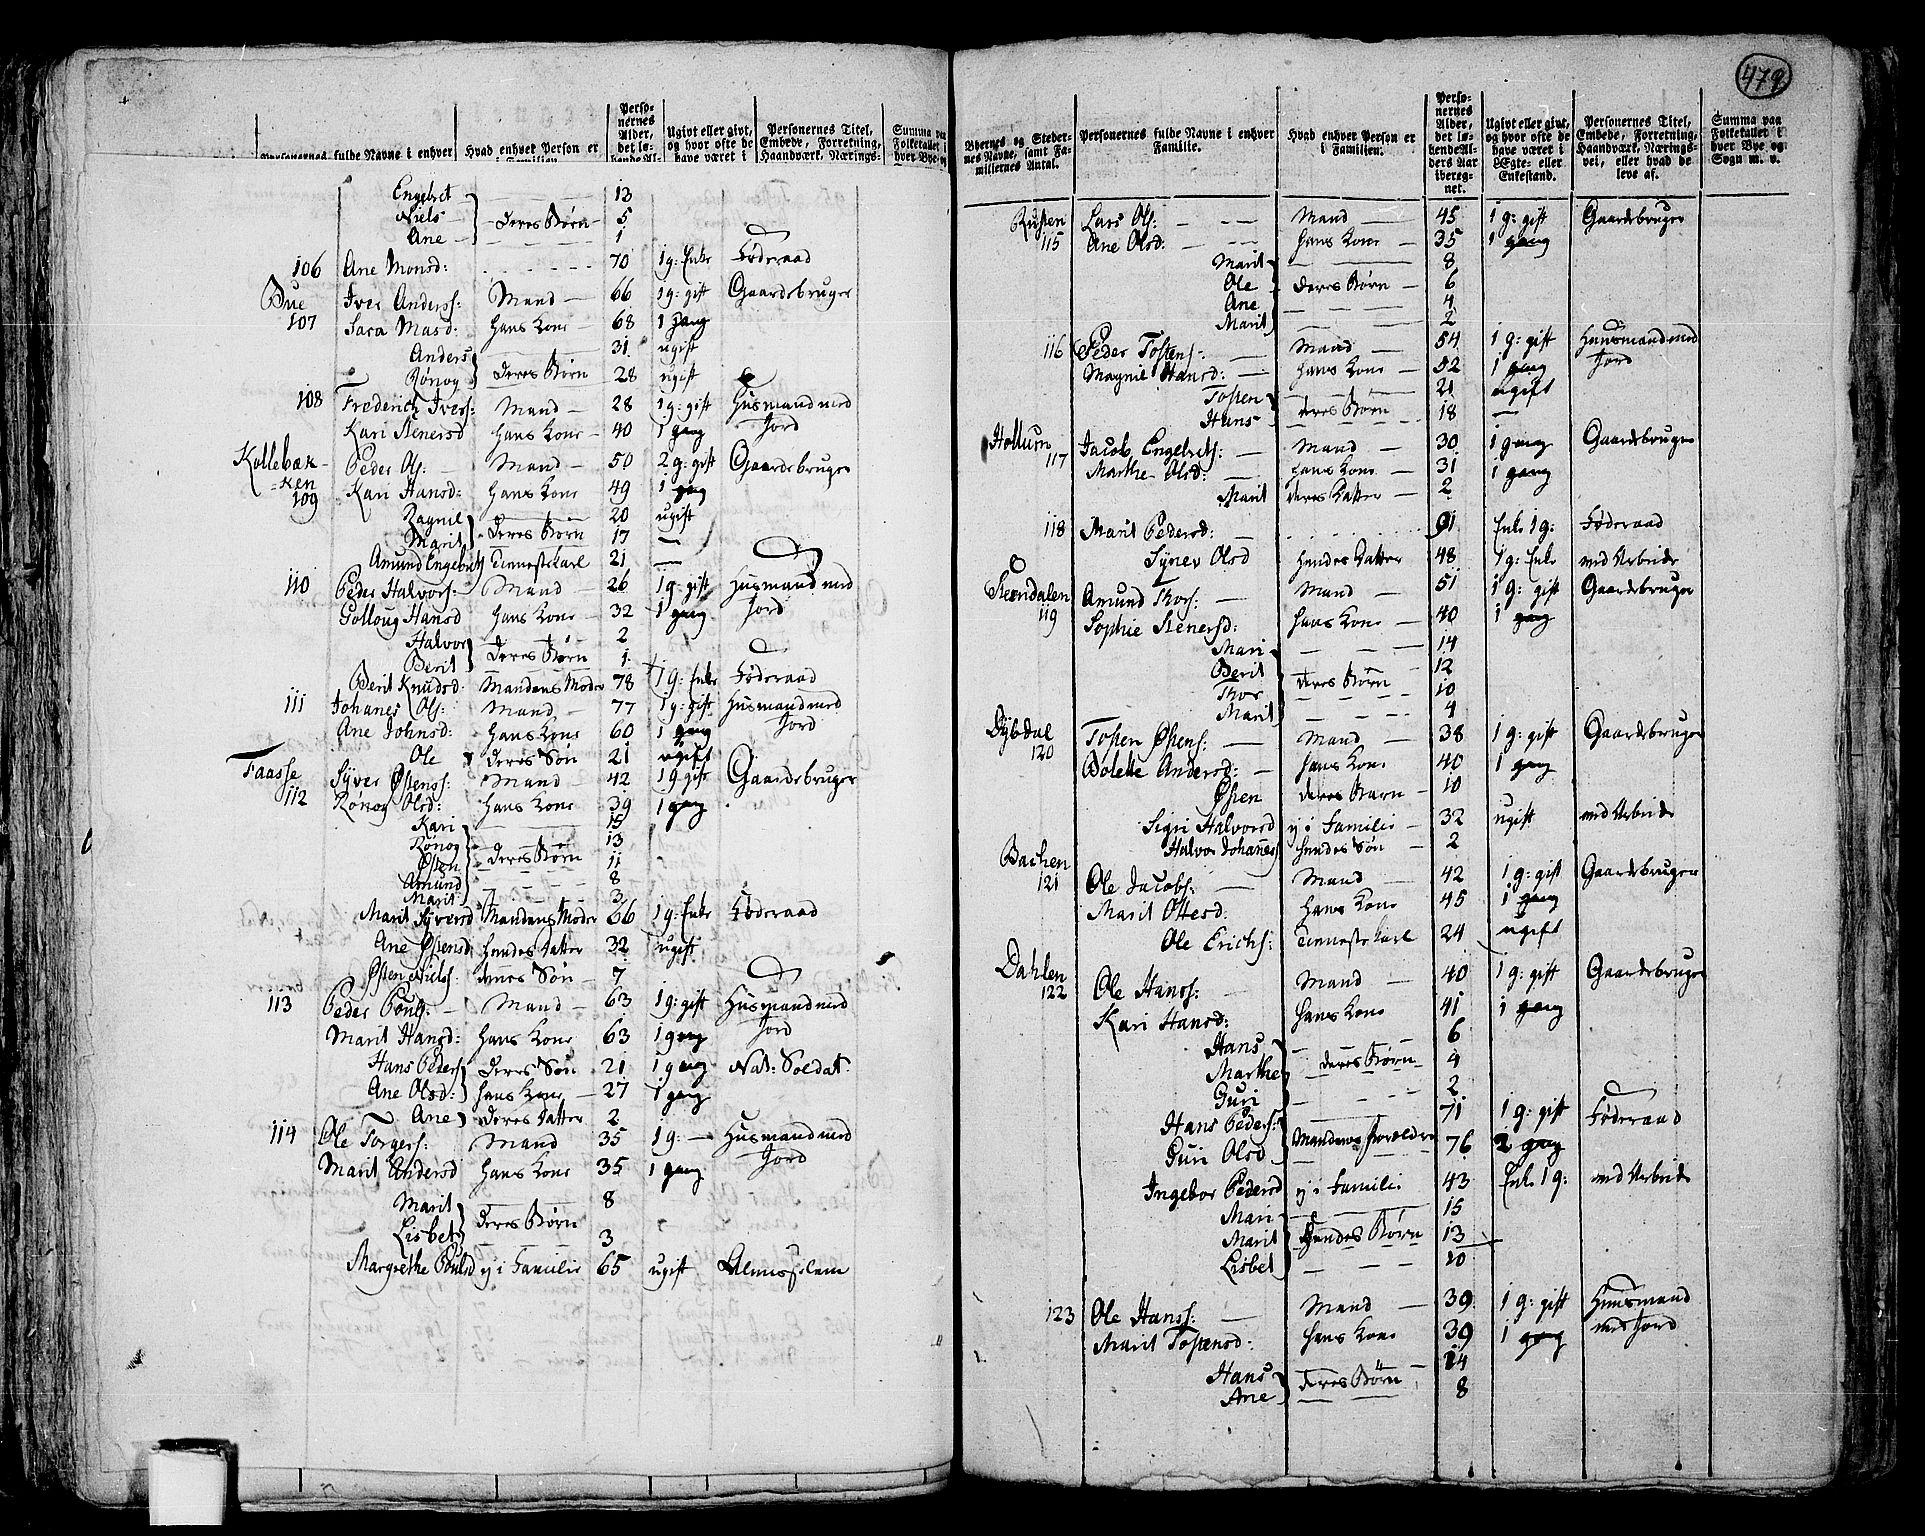 479
Personernes fulde Navne i enhver
Hvad enhver Person er i Familien.
Personernes Alder, det løbende Al-
Ugivt eller givt, og hvor ofte de have været i
Personernes Titel, Embede, Forretning, Haandværk, Nærings-
Summa paa Folketallet i hver Bye og
Engebret 13
Niels — Deres Børn 5
Ane — 1
106 Ane Monsd: 70 1 g: Enke Føderaad
Bue Iver Anderss: Mand 66 1 g: gift Gaardebruger
107 Sara Masd: Hans Kone 68 1 gang
Anders 31 ugift
Rønog Deres Børn 28 ugift
108 Frederich Ivers: Mand 28 1 g: gift Husmand med
Kari Stenersd Hans Kone 40 1 gang Jord
Kollebæk- Peder Ols: Mand 50 2 g: gift Gaardebruger
=ken 109 Kari Hansd: Hans Kone 49 1 gang
Ragnil 20 ugift
Marit Deres Børn 17 —
Amund Engebrets Tienestekarl 21 —
110 Peder Halvors: Mand 26 1 g: gift Husmand med
Golloug Hansd Hans Kone 32 1 gang Jord
Halvor 2
Berit Deres Børn 1
Berit Knudsd: Mandens Moder 78 1 g: Enke Føderaad
111 Johanes Ols: Mand 77 1 g: gift Husmand med
Ane Johnsd: Hans Kone 60 1 gang Jord
Ole Deres Søn 21 ugift
Faasse Syver Østenss: Mand 42 1 g gift Gaardebruger
112 Rønog Olsd: Hans Kone 39 1 gang
Kari 15
Rønog 13
Østen Deres Børn 11
Amund 8
Marit 3
Marit Syversd Mandens Moder 66 1 g: Enke Føderaad
Ane Østensd Hendes Datter 32 ugift
Østen Niels: Hennes Søn 7
113 Peder Pouls: Mand 63 1 g: gift Husmand med
Marit Hansd: Hans Kone 63 1 gang Jord
Hans Peders Deres Søn 21 1 gang Nat: Soldat
Ane Olsd: Hans Kone 27 1 gang
Ane Deres Datter 2
114 Ole Torgers: Mand 35 1 g: — Husmand med
Marit Andersd Hans Kone 35 1 gang Jord
Marit 8
Lisbet Deres Børn 3
Margrethe Poulsd ej i Familie 65 ugift Almuslem
Byernes og Stedernes Navne, samt Familiernes Antal.
Personernes fulde Navne i enhver Familie.
Hvad enhver Person er i Familien.
Personernes Alder, det løbende Alders Aar iberegnet.
Ugivt eller givt, og hvor ofte de have været i Ægte- eller Enkestand.
Personernes Titel, Embede, Forretning, Haandværk, Næringsvei, eller hvad de leve af.
Summa paa Folketallet i hver Bye og Sogn m. v.
Rusten Lars Ols: Mand 45 1 g: gift Gaardebruger
115 Ane Olsd: Hans Kone 35 1 gang
Marit 8
Ole Deres Børn 6
Ane 4
Marit 2
116 Peder Tostens: Mand 54 1 g: gift Huusmand med
Magnil Hansd: Hans Kone 52 1 gang Jord
Tosten 21 ugift
Hans Deres Børn 18 —
Hollum Jacob Engebrets: Mand 30 1 gang Gaardebruger
117 Marthe Olsd: Hans Kone 31 1 gang
Marit Deres Datter 2
118 Marit Pedersd: 91 Enke 1 g: Føderaad
Synev Olsd Hendes Datter 48 1 g: Enke ved Arbeide
Steendalen Amund Thors: Mand 51 1 g: gift Gaardebruger
119 Sophie Stenersd: Hans Kone 40 1 gang
Mari 14
Berit 12
Thor Deres Børn 10
Marit 4
Dybdal Tosten Østens: Mand 38 1 g: gift Gaardebruger
120 Bolette Andersd: Hans Kone 40 1 gang
Østen Deres Barn 10
Sigri Halvorsd ej i Familie 32 ugift ved Arbeide
Halvor Johaness Hendes Søn 2
Bachen Ole Jacobs: Mand 42 1 g: gift Gaardebruger
121 Marit Ottesd: Hans Kone 45 1 gang
Ole Erichs: Tienestekarl 24 ugift
Dahlen Ole Hanss: Mand 40 1 g: gift Gaardebruger
122 Kari Hansd: Hans Kone 41 1 gang
Hans 6
Marthe Deres Børn 4
Guri 2
Hans Peders: 71 1 g: gift Føderaad
Guri Olsd Mandens Forældre 76 2 gang
Ingebor Pedersd ej i Familie 43 Enke 1 g: ved Arbeide
Mari 15
Marit Hendes Børn 13
Lisbet 10
123 Ole Hanss: Mand 39 1 g: gift Huusmand
Marit Tostensd: Hans Kone 39 1 gang med Jord
Hans 14
Ane Deres Børn 8